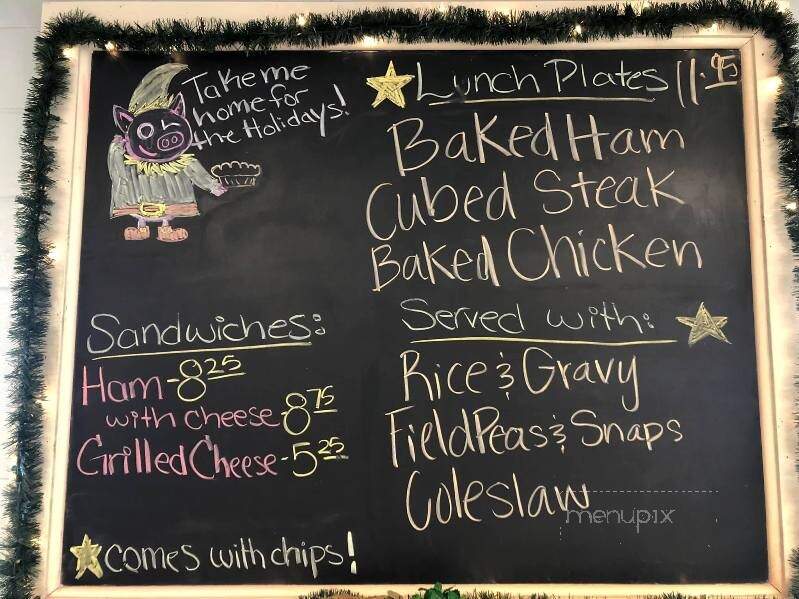 Take me
home for
the Holidays!
Lunch Plates 11.95
Baked Ham
Cubed Steak
Baked Chicken
Served with:
Rice & Gravy
Field Peas & Snaps
Coleslaw
Sandwiches:
Ham - 8.25
with cheese 8.75
Grilled Cheese - 5.25
comes with chips!
menupix